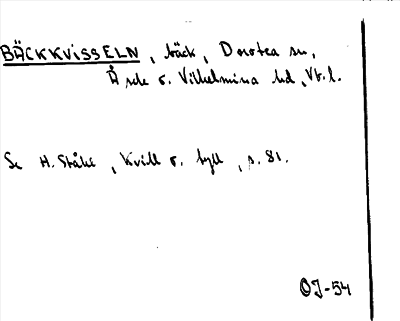 BÄCKKVISSELN, bäck, Dorotea sn,
Åsele o. Vilhelmina hd, Vb. l.
Se H. Ståhl, Kvill o. tyll, s. 81.
OJ-54